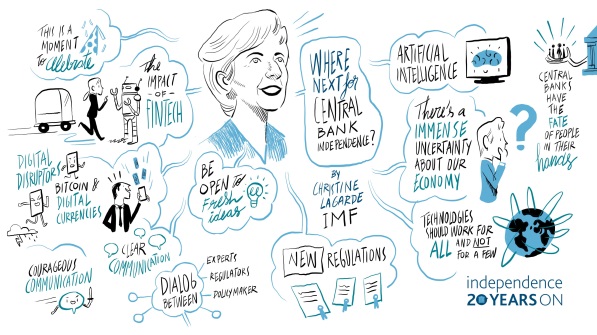 THIS IS A
MOMENT
to Celebrate
THE
IMPACT
OF
FINTECH
DIGITAL
DISRUPTORS
BITCOIN &
DIGITAL
CURRENCIES
COURAGEOUS
COMMUNICATION
CLEAR
COMMUNICATION
BE
OPEN to
Fresh
ideas
DIALOG
BETWEEN
EXPERTS
REGULATORS
POLICYMAKER
WHERE
NEXT for
CENTRAL
BANK
INDEPENDENCE?
BY
CHRISTINE
LAGARDE
IMF
NEW REGULATIONS
ARTIFICIAL
INTELLIGENCE
There's a
IMMENSE
UNCERTAINTY
ABOUT OUR
ECONOMY
?
TECHNOLOGIES
SHOULD WORK FOR
ALL AND NOT
FOR A FEW
CENTRAL
BANKS
HAVE
THE
FATE
OF PEOPLE
IN THEIR
hands
independence
20 YEARS ON